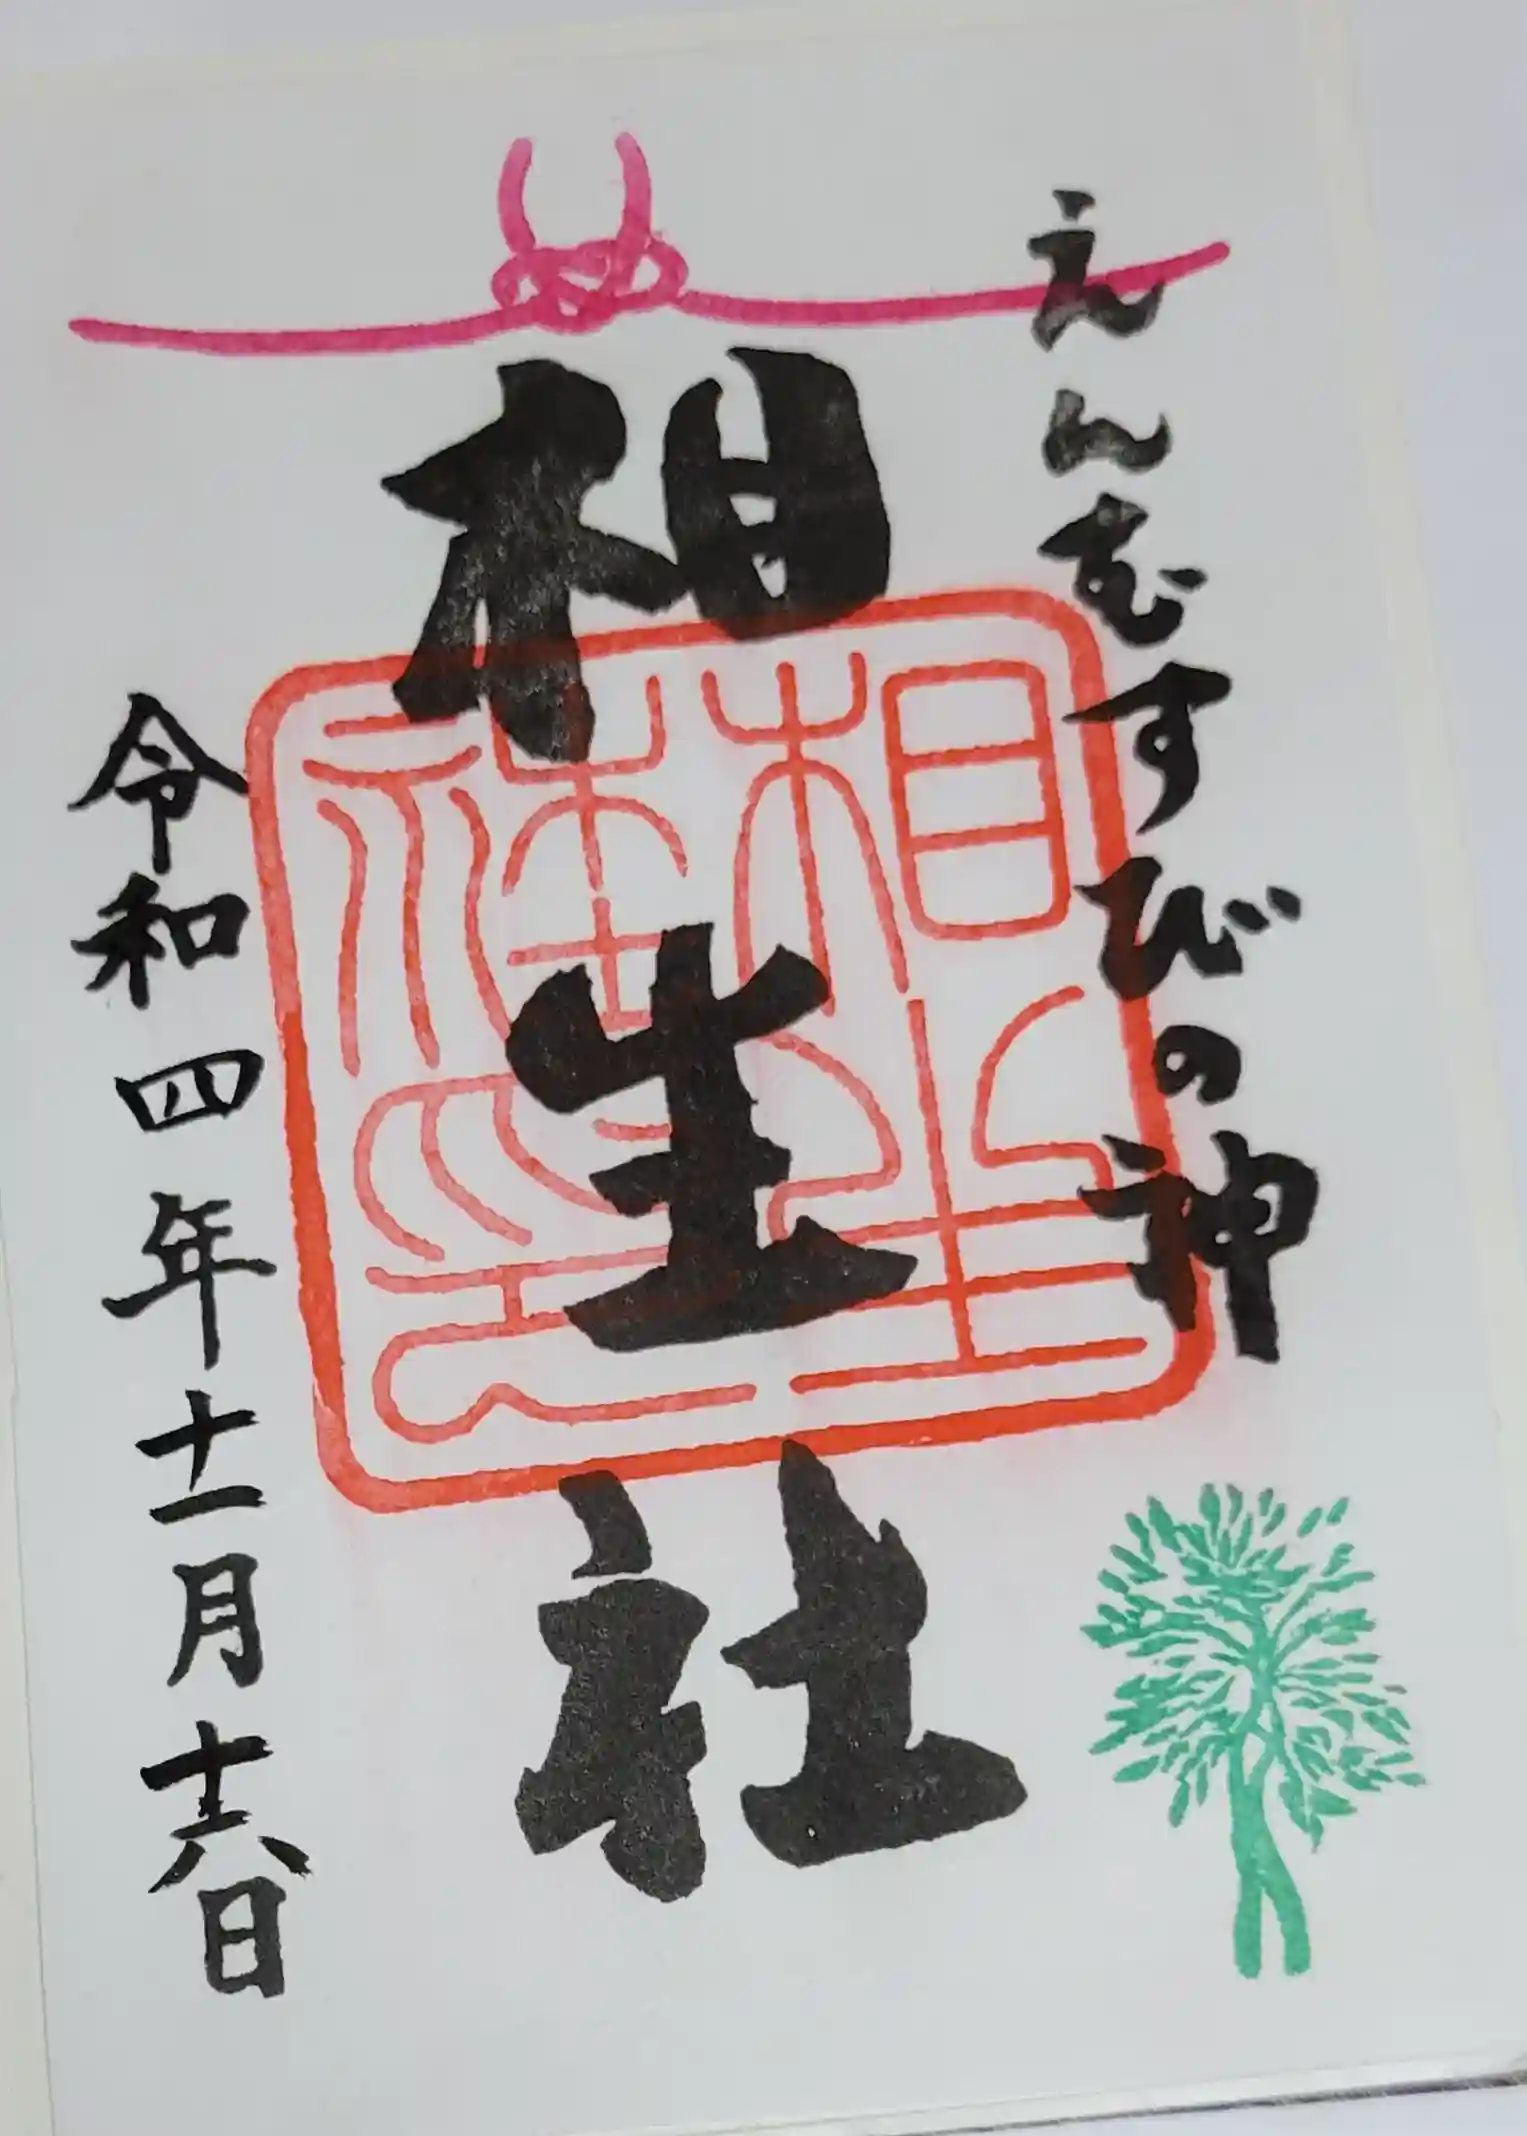 えんむすびの神
相生社
相生社
神璽
令和四年十一月十六日